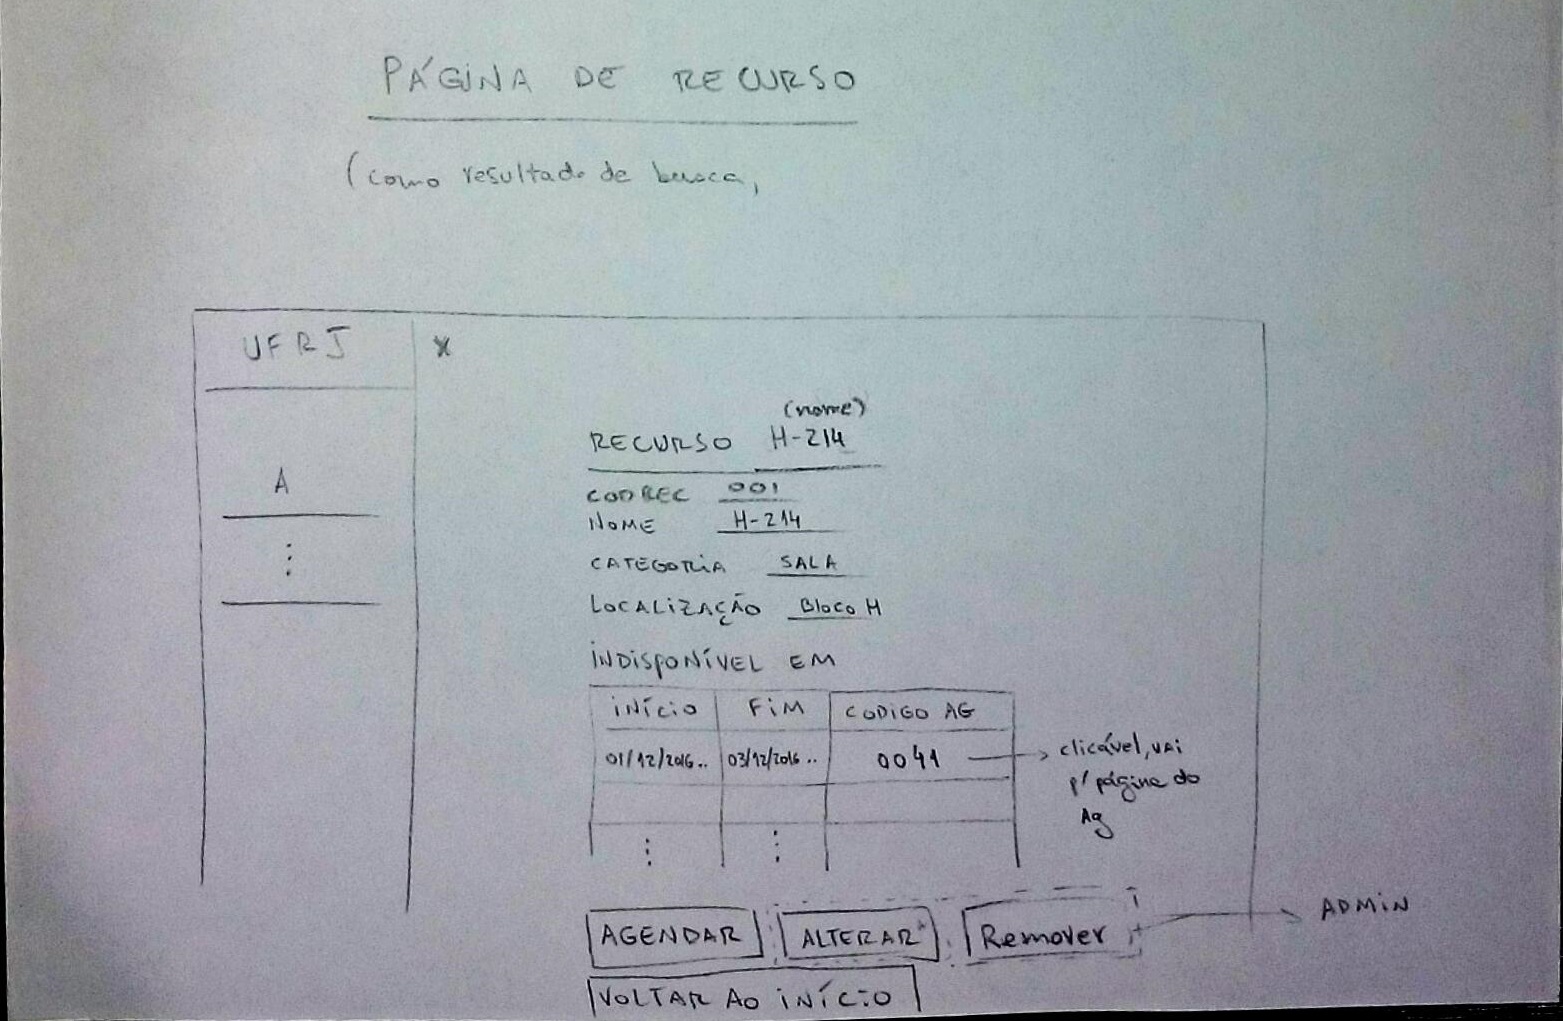 PÁGINA DE RECURSO
(como resultado de busca,
UFRJ
X
A
(nome)
RECURSO H-214
CODREC 001
NOME H-214
CATEGORIA SALA
LOCALIZAÇÃO Bloco H
INDISPONÍVEL EM
INÍCIO FIM CODIGO AG
01/12/2016.. 03/12/2016.. 0041
clicável, vai
p/ página do
Ag
AGENDAR ALTERAR Remover
ADMIN
VOLTAR AO INÍCIO